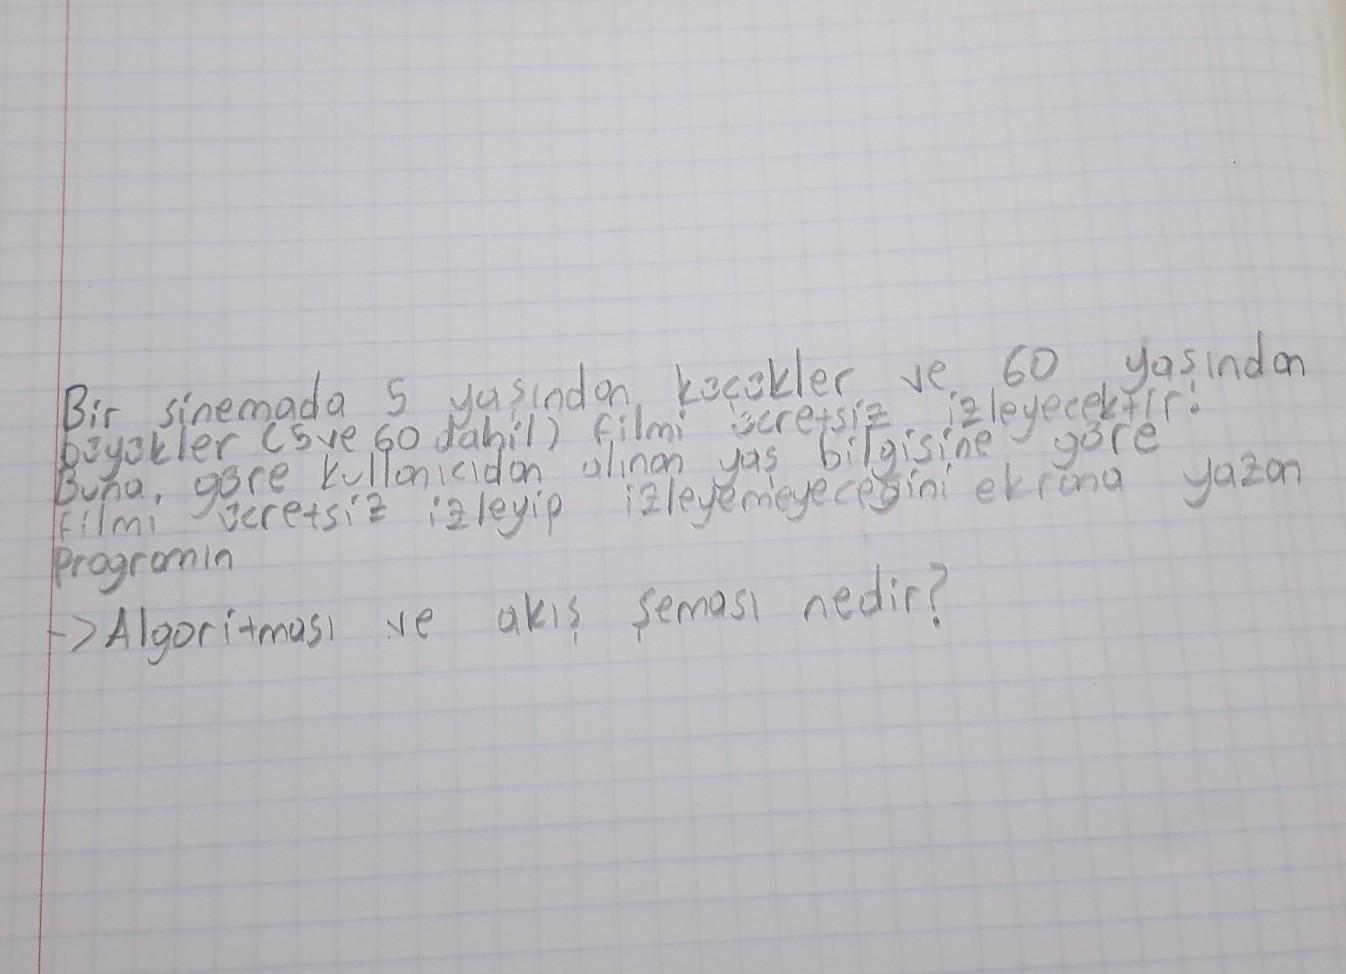 Bir sinemada 5 yaşından küçükler ve 60 yaşından
büyükler (5 ve 60 dahil) filmi ücretsiz izleyecektir.
Buna, göre kullanicidan alinan yas bilgisine göre
filmi ücretsiz izleyip izleyemeyeceğini ekrana yazan
Programın
-> Algoritması ve akış şeması nedir?